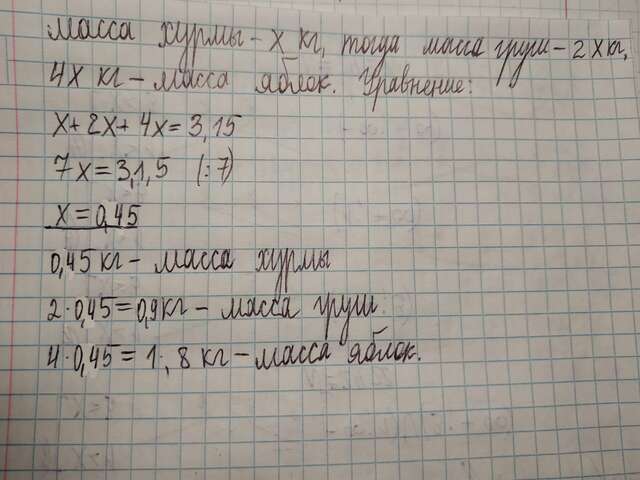 Масса хурмы - x кг, тогда масса груш - 2x кг,
4x кг - масса яблок. Уравнение:
x + 2x + 4x = 3,15
7x = 3,15 (:7)
x = 0,45
0,45 кг - масса хурмы
2·0,45 = 0,9 кг - масса груш
4·0,45 = 1,8 кг - масса яблок.